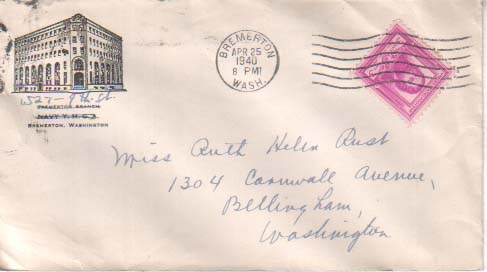 BREMERTON
APR 25
1940
8 PM
WASH.
1527 - 9th St.
BREMERTON BRANCH
NAVY Y.M.C.A.
BREMERTON, WASHINGTON
Miss Ruth Helen Rust
1304 Cornwall Avenue,
Bellingham,
Washington